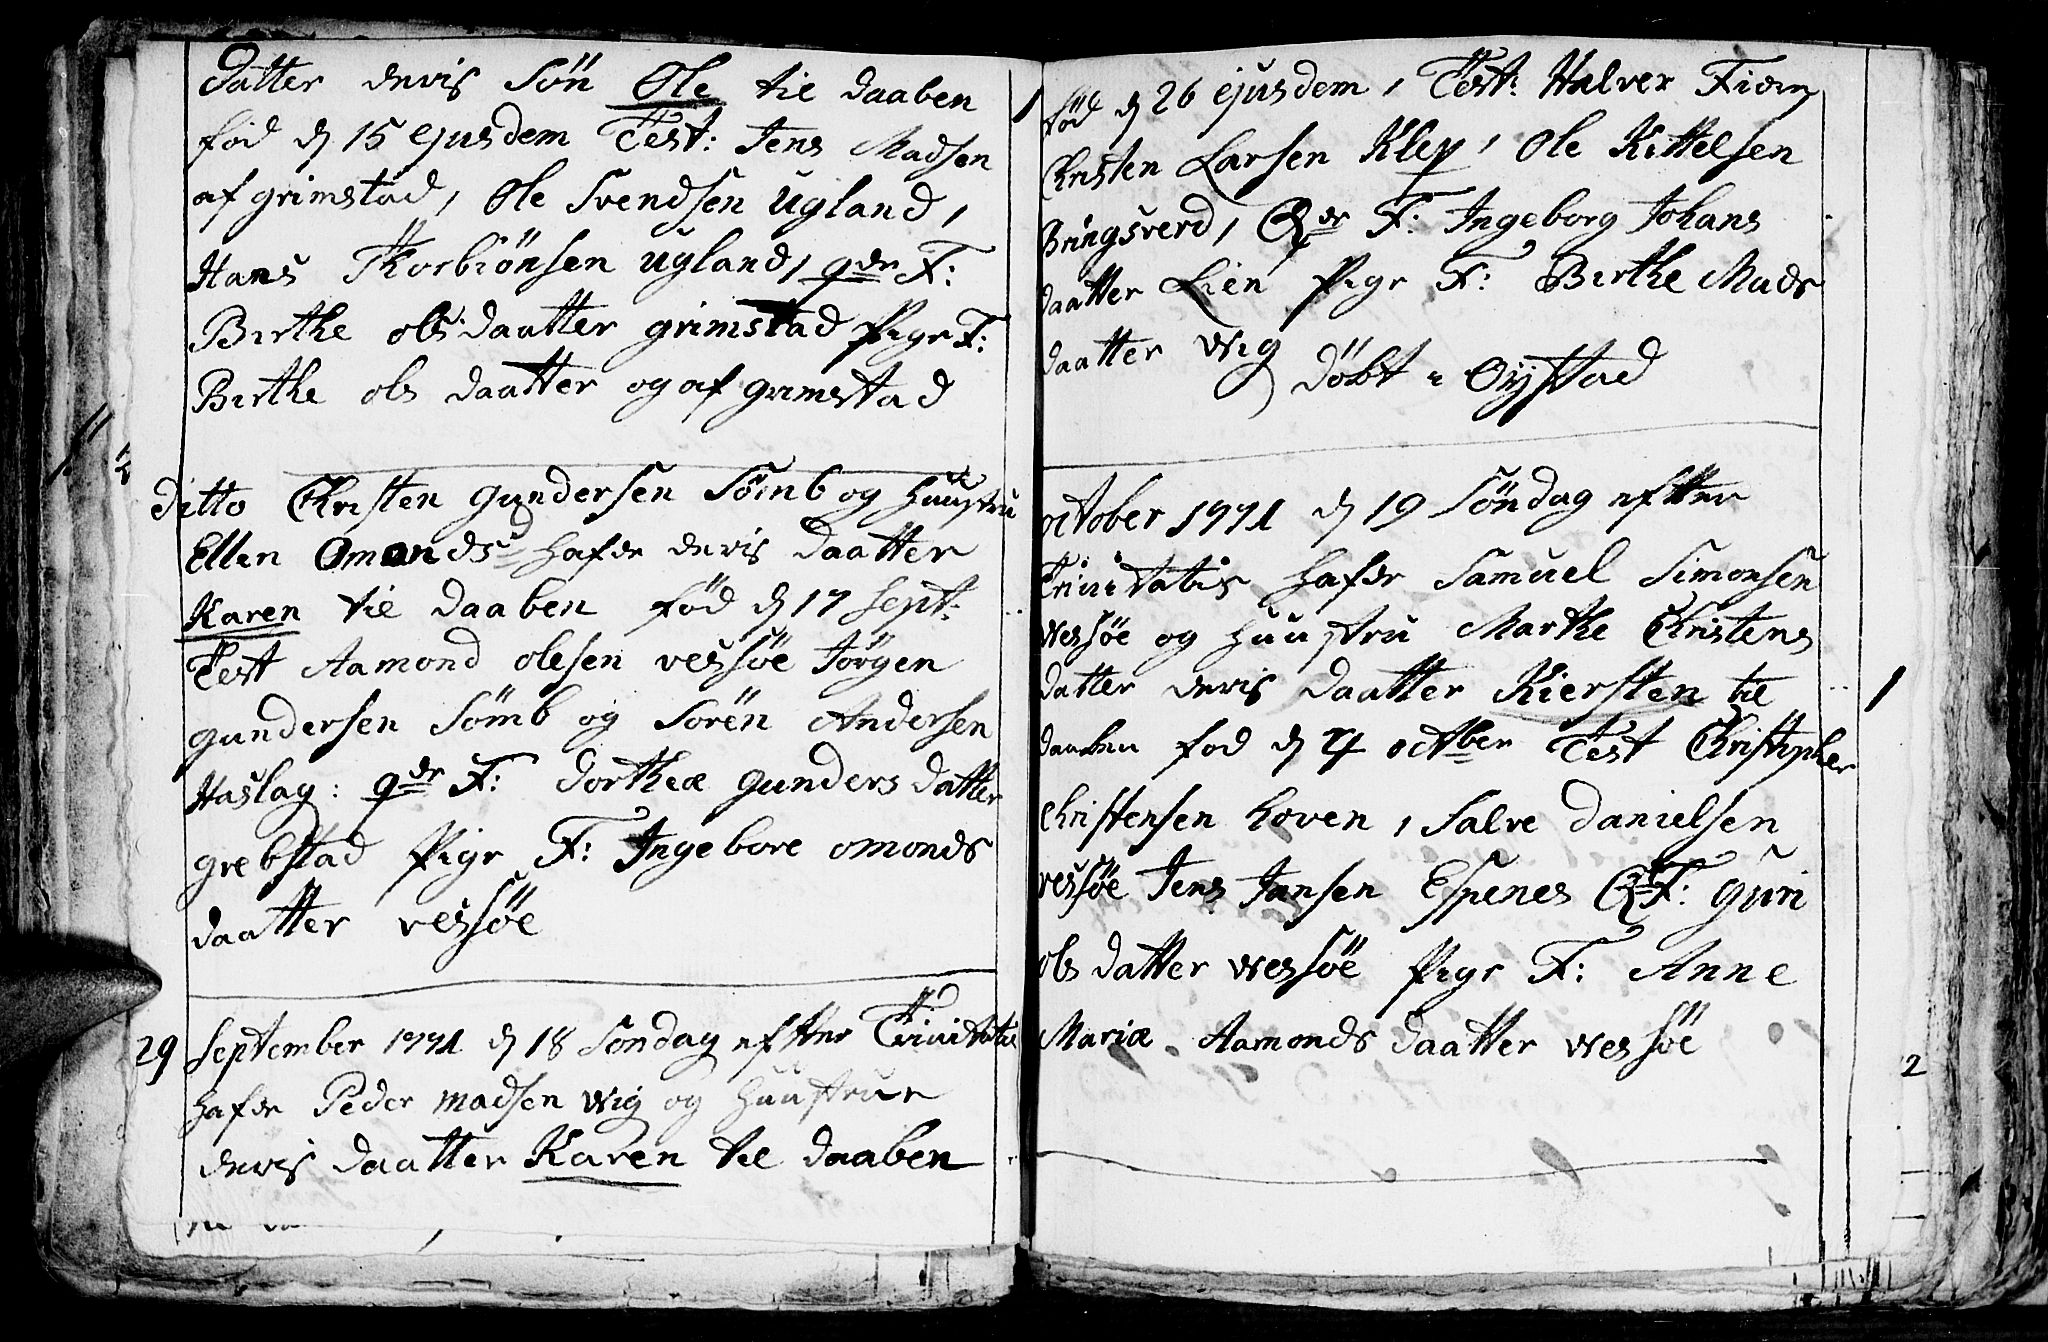 Datter deris Søn Ole til daaben
fød d 15 ejusdem Test: Jens Madsen
af grimstad, Ole Svendsen Ugland,
Hans Thorbiönsen ugland, qdr F:
Birthe ols daatter grimstad Pigr F:
Birthe ols daatter og af grimstad
Ditto Christen gundersen Sömb og Huustru
Ellen Omonds d hafde deris daatter
Karen til daaben fød d 17 Sept:
Test Aamond olesen vessøe Jörgen
gundersen Sömb og Sorën Andersen
Haslag: qdr F: dortheæ gunders datter
grebstad Pigr F: Ingebore omonds
daatter vessöe
29 September 1771 d 18 Sondag efter Trinitatis
hafde Peder madsen Wig og Huustrue
deris daatter Karen til daaben
1
fød d 26 ejusdem, Test: Halver
Christen Larsen Klep, Ole Kittelsen
Bringsverd, Qdr F: Ingeborg Johans
daatter Lien Pigr F: Birthe Mads
daatter Wig döbt i Öyestad
october 1771 d 19 Söndag efter
Trinitatis hafde Samuel Simonsen
Wessøe og Huustru Marthe Christens
datter deris daatter Kiersten til
1
daaben fod d 4 octber Test Christopher
Christensen hoven, Salve danielsen
vessøe Jens Jansen Espenes Q F: guri
ols datter Wessöe Pigr F: Anne
Mariæ Aamonds daatter Wessöe
2